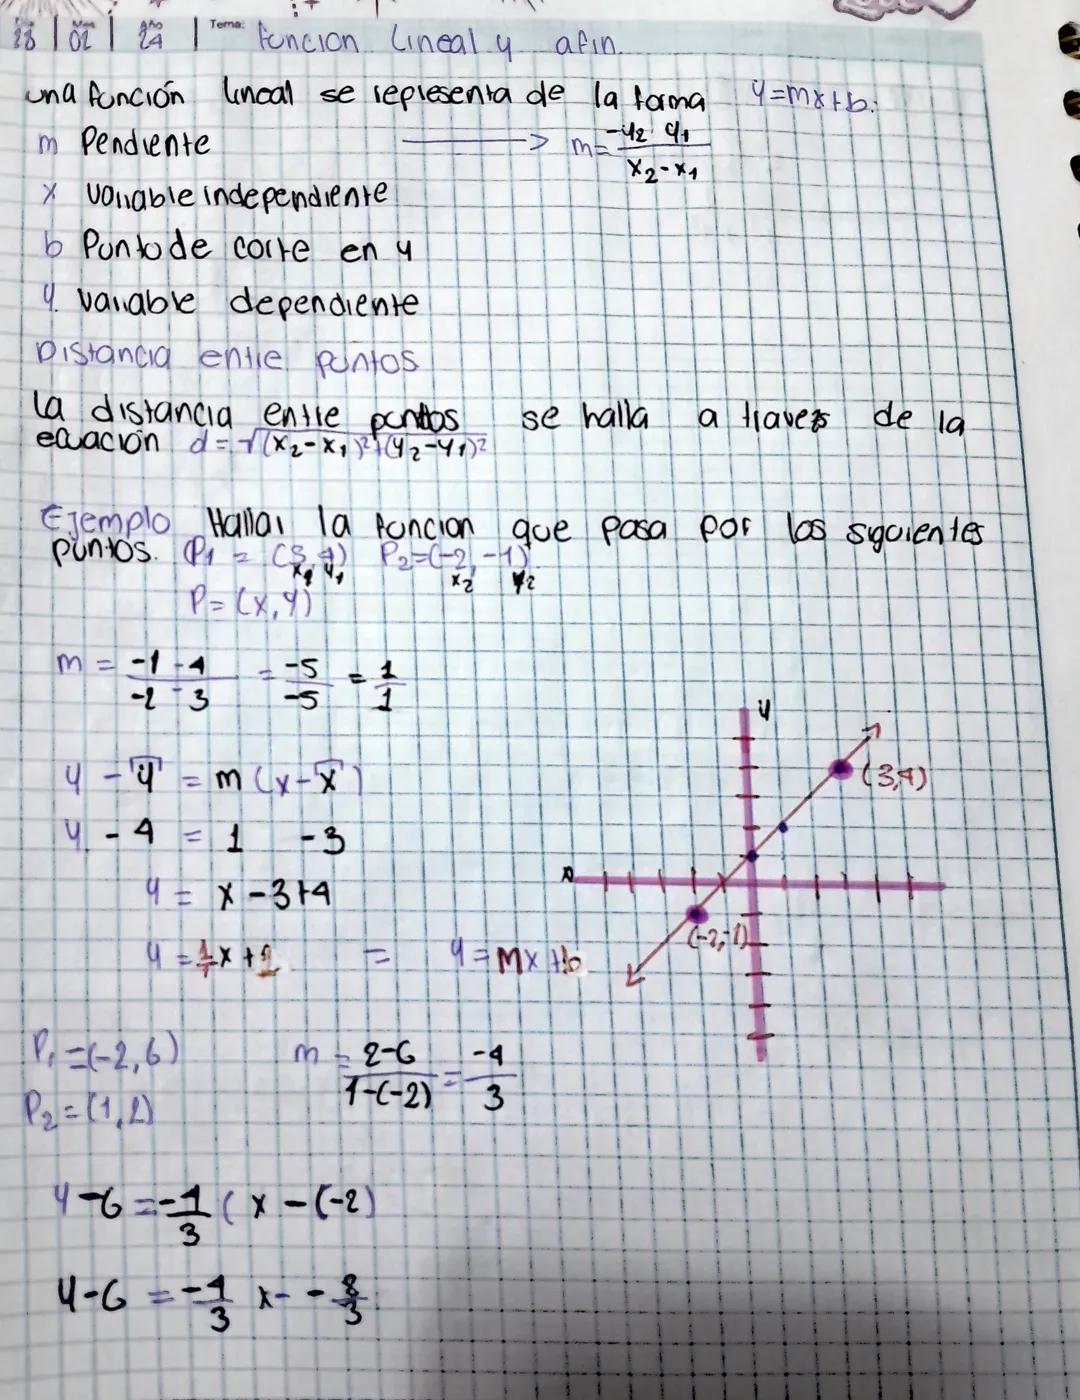 Día 28 | Mes 02 | Año 24 | Tema: Funcion Lineal y afin.
una función lineal se representa de la forma y=mx+b.
m Pendiente → m= -y2 y1 / x2-x1
x variable independiente
b Punto de corte en y
y. variable dependiente
Distancia entre puntos
la distancia entre puntos se halla a traves de la
ecuación d=√(x2-x1)²+(y2-y1)²
Ejemplo Hallar la funcion que pasa por los siguientes
puntos. P1 = (3,4) P2=(-2,-1)
x1 y1 x2 y2
P=(x,y)
m = -1-4 / -2-3 = -5 / -5 = 1 / 1
y
y - y = m (x-x)
(3,4)
y. - 4 = 1 -3
x
y = x -3+4
(-2,-1)
y = 1/1 x + 1 = y=mx+b
P1=(-2,6) m = 2-6 / 1-(-2) = -4 / 3
P2=(1,2)
y-6 = -4/3 (x-(-2)
y-6 = -4/3 x- - 8/3